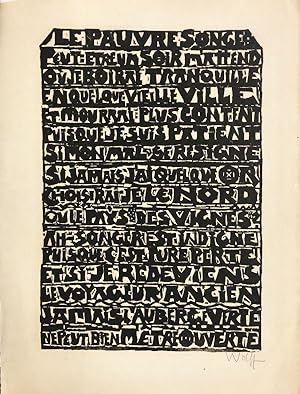 LE PAUVRE SONGE
PEUT-ETRE UN SOIR M'ATTEND
OU JE BOIRAI TRANQUILLE
EN QUELQUE VIEILLE VILLE
ET MOURRAI PLUS CONTENT
PUISQUE JE SUIS PATIENT
SI MON MAL SE RESIGNE
SI JAMAIS J'AI QUELQUE OR
CHOISIRAI-JE LE NORD
OU LE PAYS DES VIGNES?
AH SONGER EST INDIGNE
PUISQUE C'EST PURE PERTE
ET SI JE REDEVIENS
LE VOYAGEUR ANCIEN
JAMAIS L'AUBERGE VERTE
NE PEUT BIEN M'ETRE OUVERTE